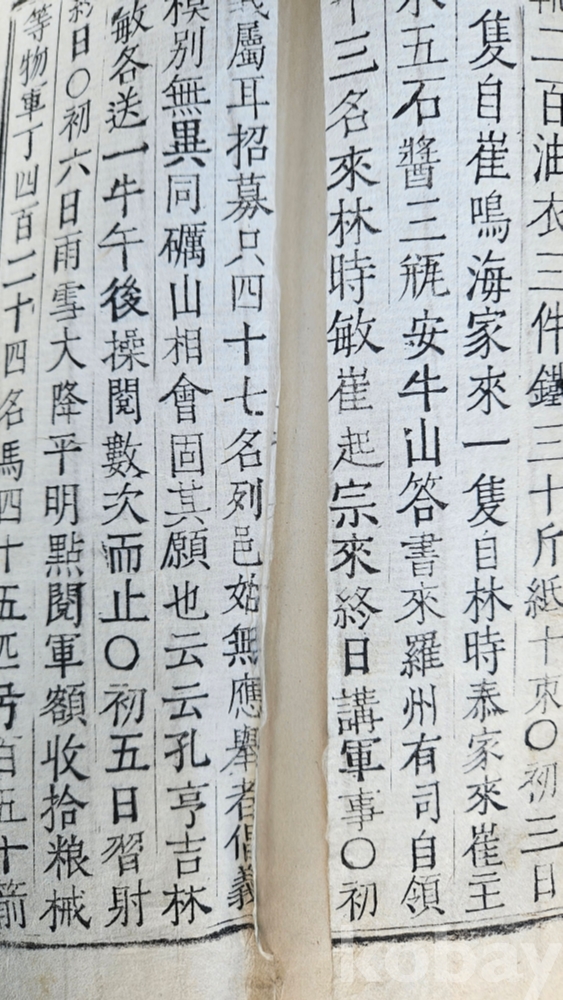 二百油衣三件鐵三十斤紙十束〇初三日
隻自崔鳴海家來一隻自林時泰家來崔主
五石醬三瓶安牛山答書來羅州有司自領
三名來林時敏崔起宗來終日講軍事〇初
屬耳招募只四十七名列邑始無應舉者倡義
別無異同礪山相會固其願也云云孔亨吉林
敏各送一牛午後操閱數次而止〇初五日習射
日〇初六日雨雪大降平明點閱軍額收拾粮械
等物車丁四百二十四名馬四十五匹弓百五十箭
kobay